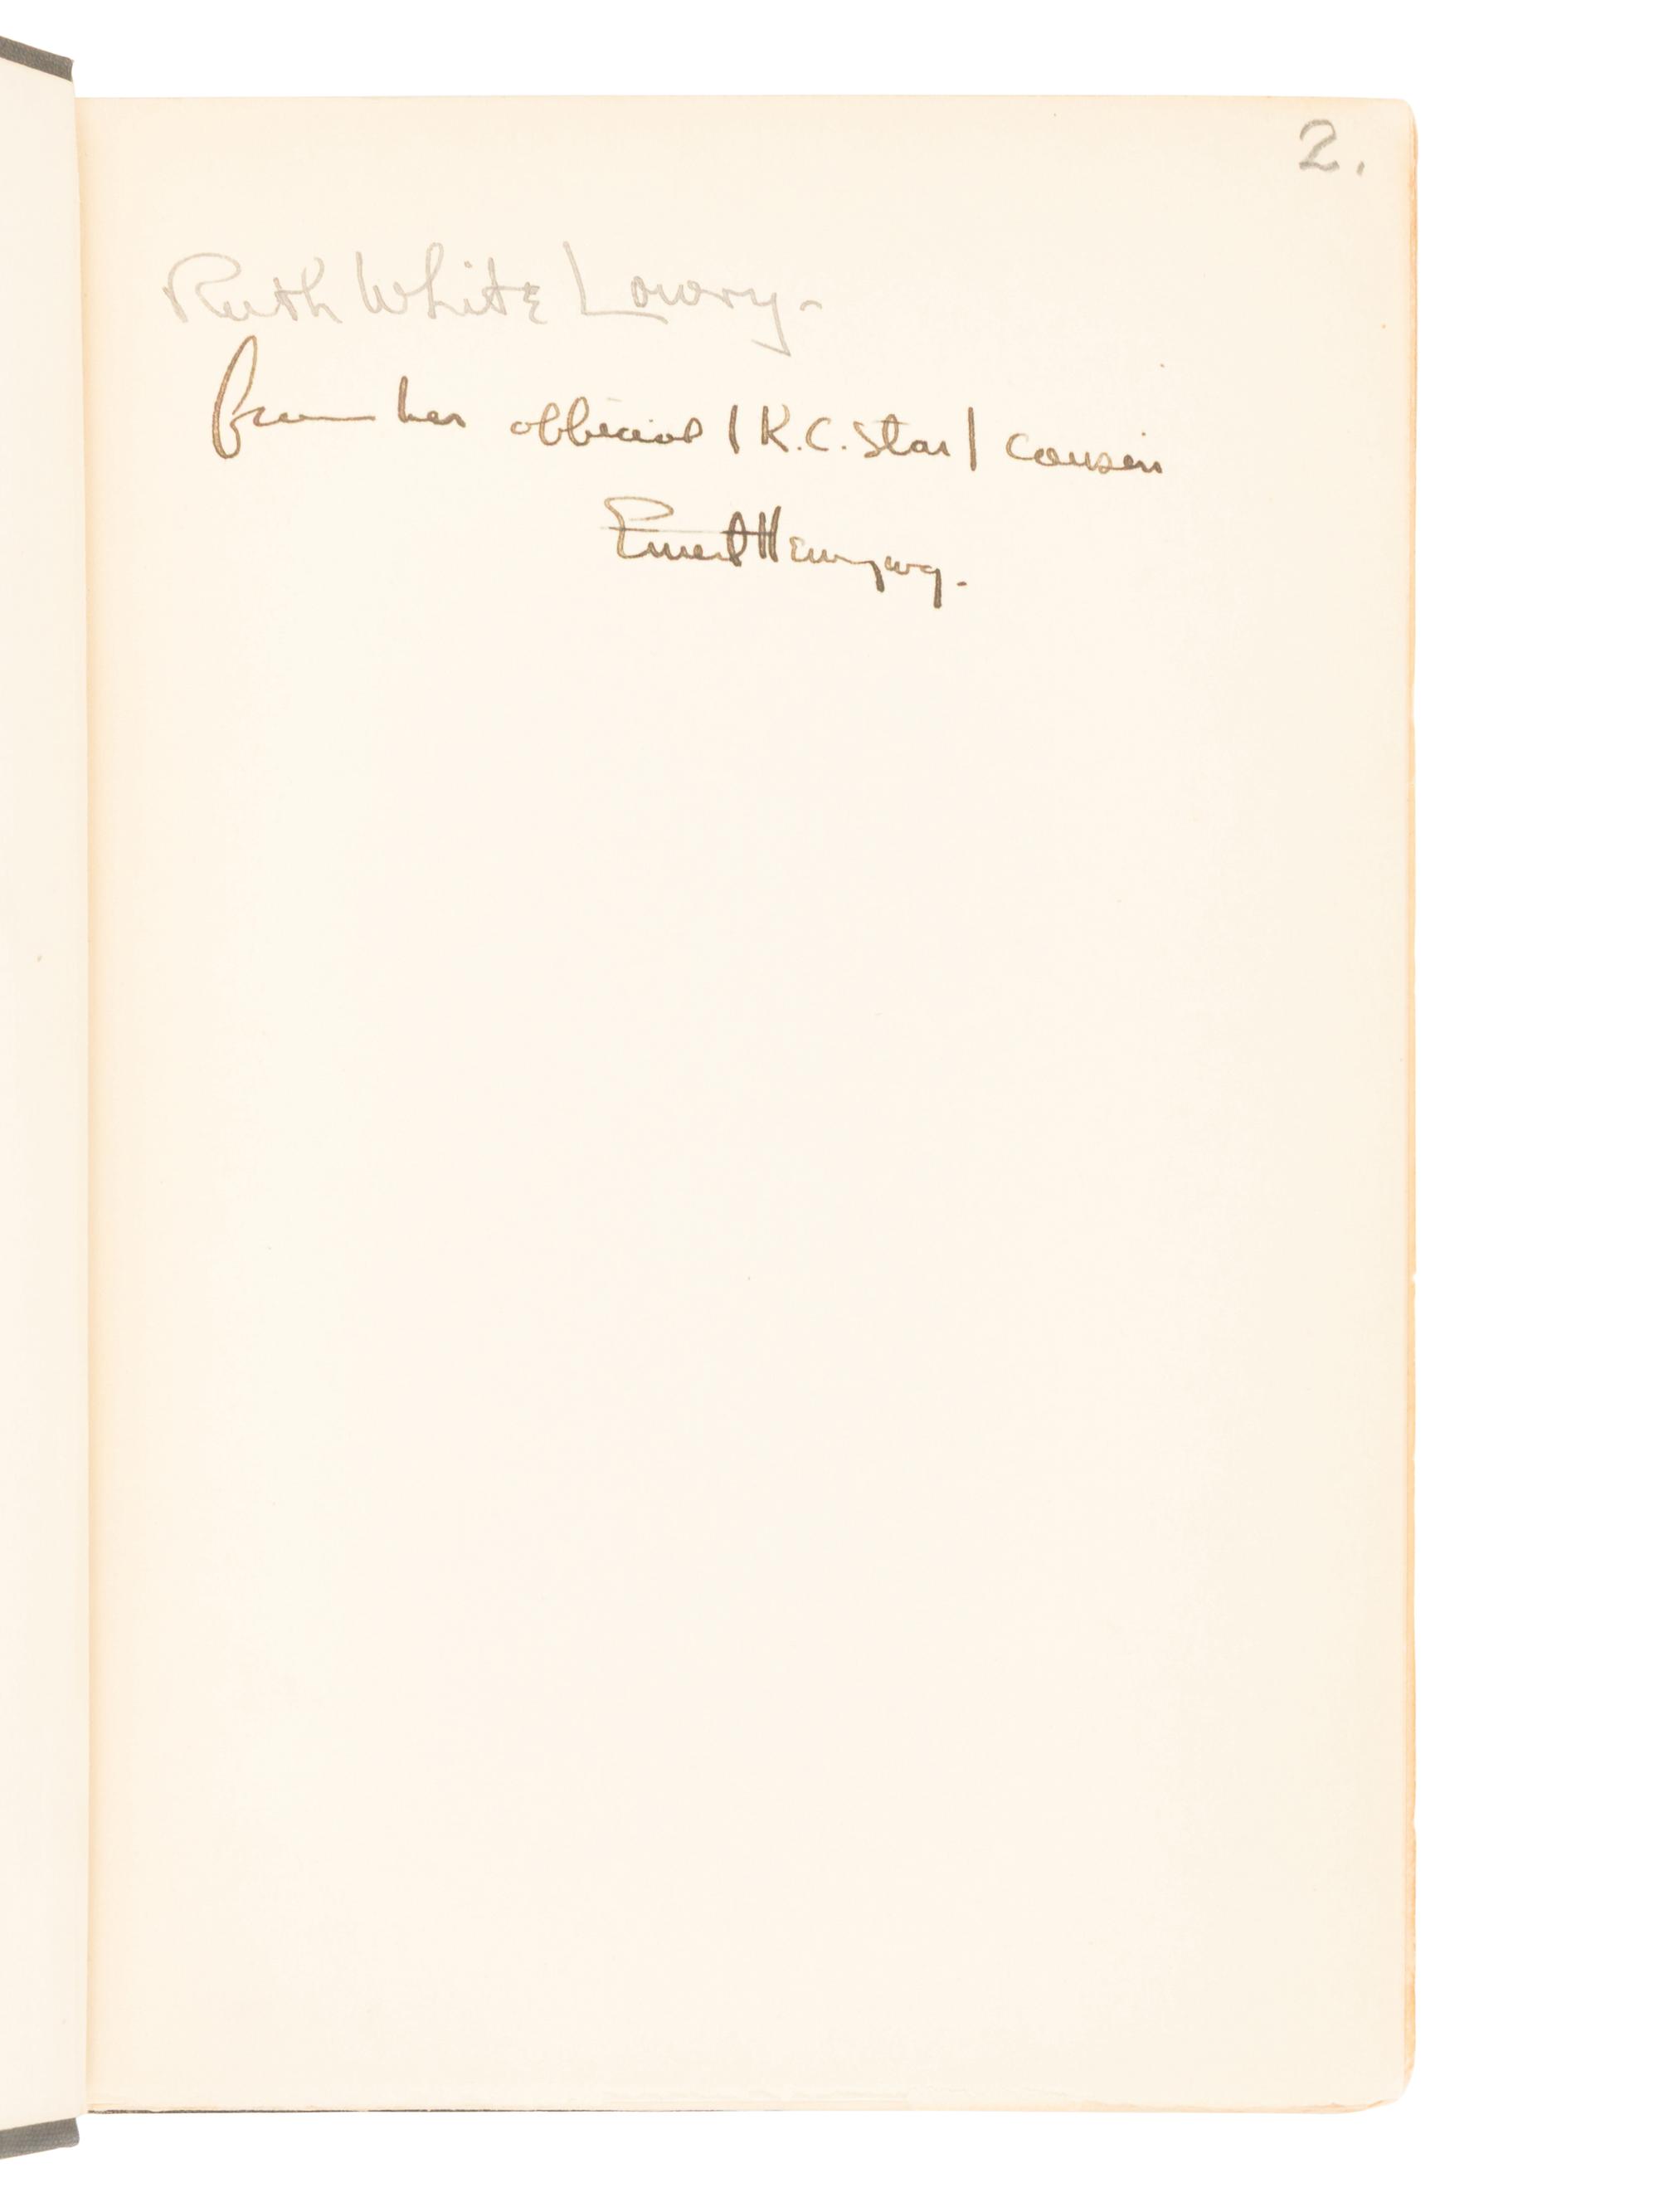 2.
Ruth White Lowry-
from her official | K.C. Star | cousin
Ernest Hemingway.